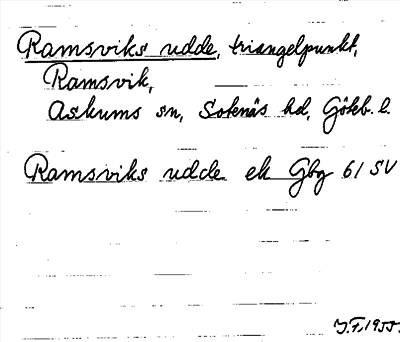 Ramsviks udde, triangelpunkt,
Ramsvik,
Askums sn, Sotenäs hd, Göteb. l.
Ramsviks udde ek Gbg 61 SV
J.F. 1955